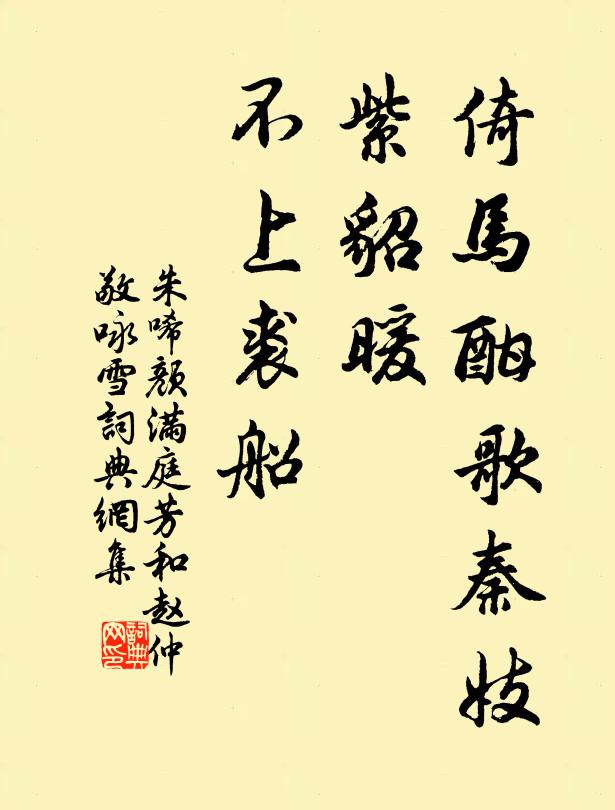 倚馬酣歌秦妓
紫貂暖
不上裘船
朱唏顏滿庭芳和赵仲
敬咏雪詞典網集
詞典
网印